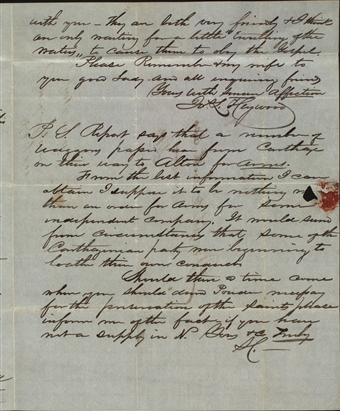 with you – they are both very friendly & I think
are only waiting for a little "troubling of the
waters", to cause them to obey the Gospel.
Please Remember & my wife to
your good Lady and all inquiring friends
Yours with Sincere Affection
Jos. L. Heywood
P. S. Report says that a number of
waggons, passed here from Carthage
on their way to Alton for arms.
From the best information I can
obtain I suppose it to be nothing more
than an order for Arms for some
independent company. It would seem
from circumstances that, some of the
Carthagenian party were beginning to
loathe their own conduct.
Should there a time come
when you should deem Powder necessary
for the preservation of the Saints, please
inform me of the fact, if you have
not a supply in N. Yours &c Truly